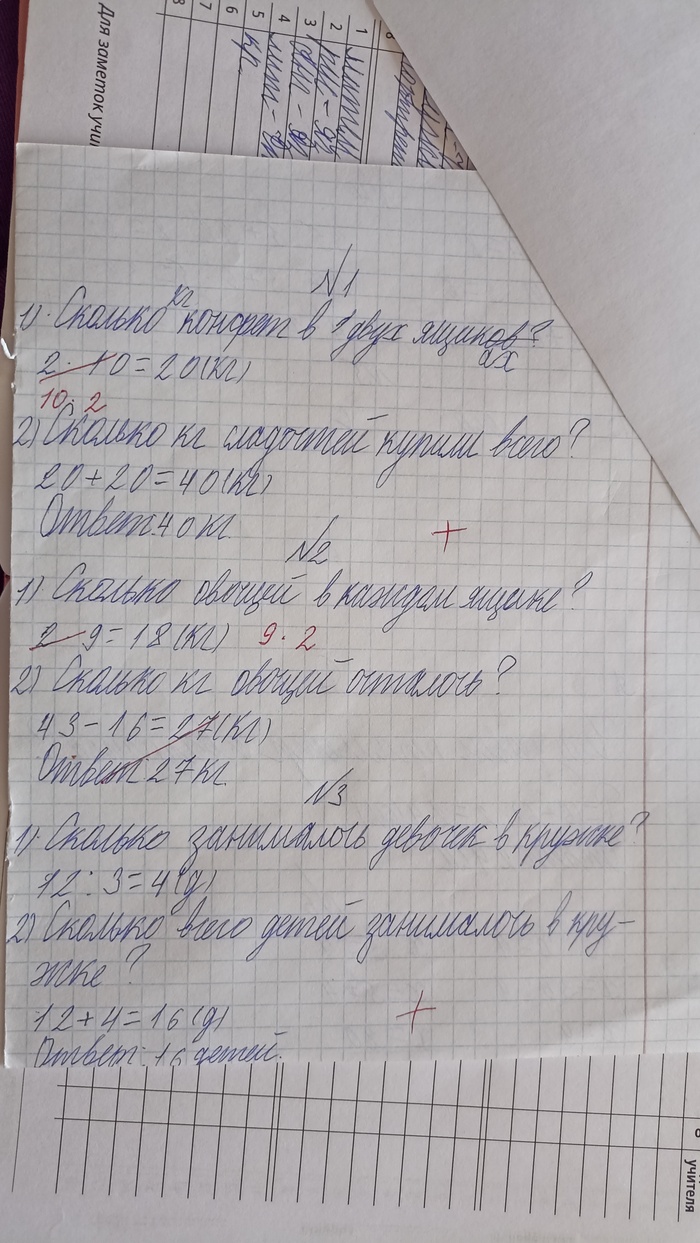 Для заметок учи
1
2
3
4
5
6
7
8
№1
1) Сколько кг конфет в двух ящиков?
ах
2 · 10 = 20 (кг)
10 · 2
2) Сколько кг сладостей купили всего?
20 + 20 = 40 (кг)
Ответ: 40 кг.
+
№2
1) Сколько овощей в каждом ящике?
2 · 9 = 18 (кг) 9 · 2
2) Сколько кг овощей осталось?
43 - 16 = 27 (кг)
Ответ: 27 кг.
№3
1) Сколько занималось девочек в кружке?
12 : 3 = 4 (д)
2) Сколько всего детей занималось в кру-
жке?
12 + 4 = 16 (д)
+
Ответ: 16 детей.
учителя